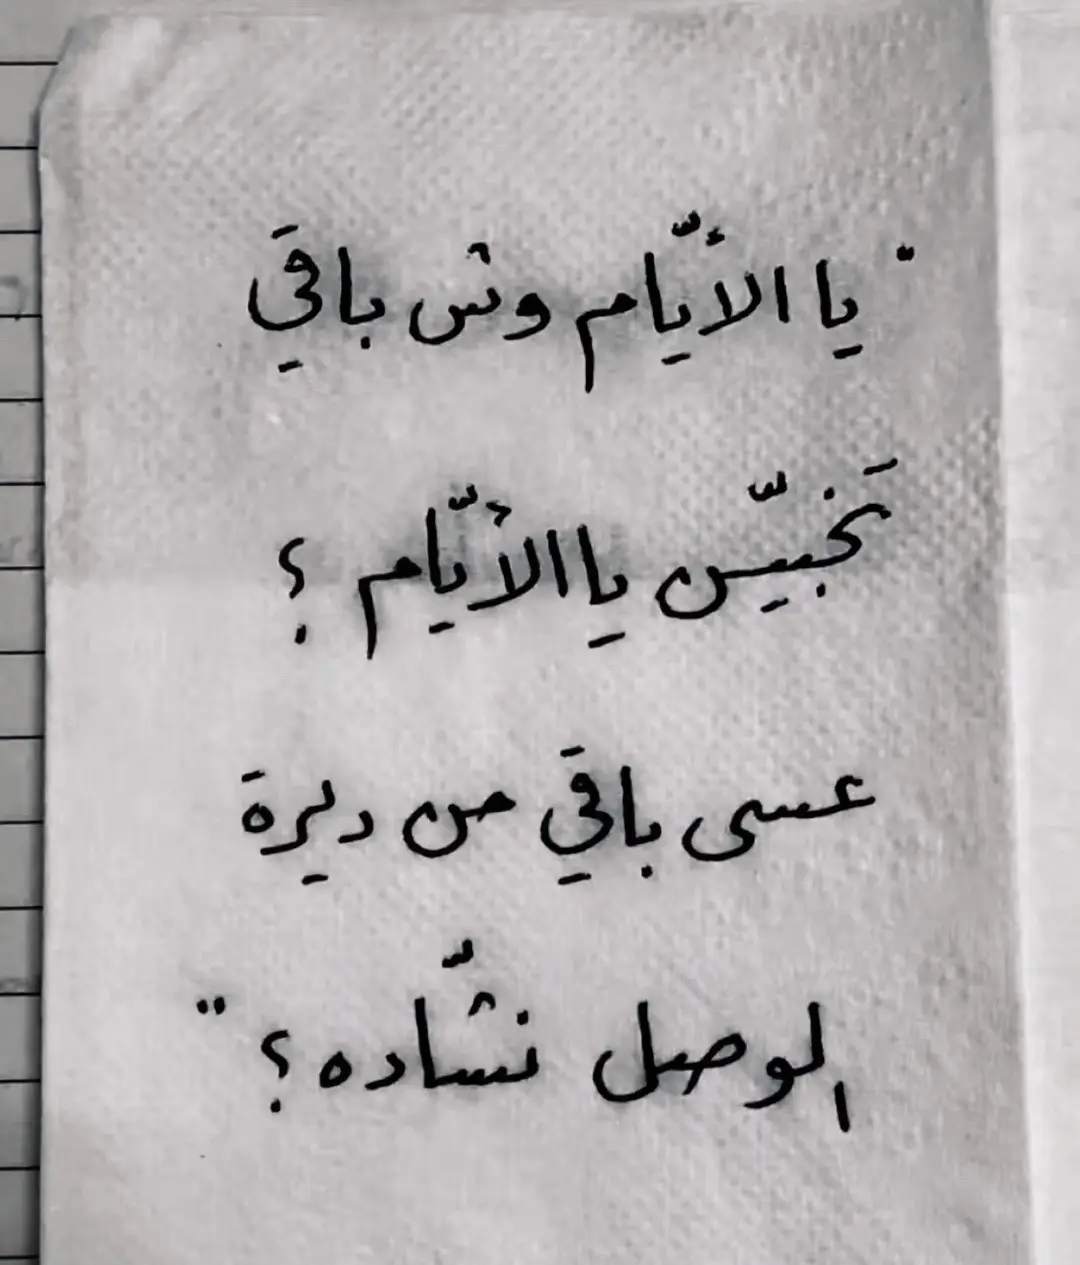 " يا الأيّام وش باقي
تخبيّن يا الأيّام ؟
عسى باقي من ديرة
الوصل نشّاده ؟ "